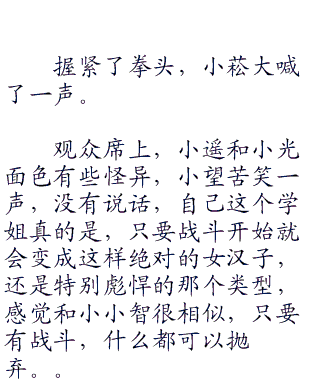 握紧了拳头，小菘大喊
了一声。
观众席上，小遥和小光
面色有些怪异，小望苦笑一
声，没有说话，自己这个学
姐真的是，只要战斗开始就
会变成这样绝对的女汉子，
还是特别彪悍的那个类型，
感觉和小小智很相似，只要
有战斗，什么都可以抛
弃。。